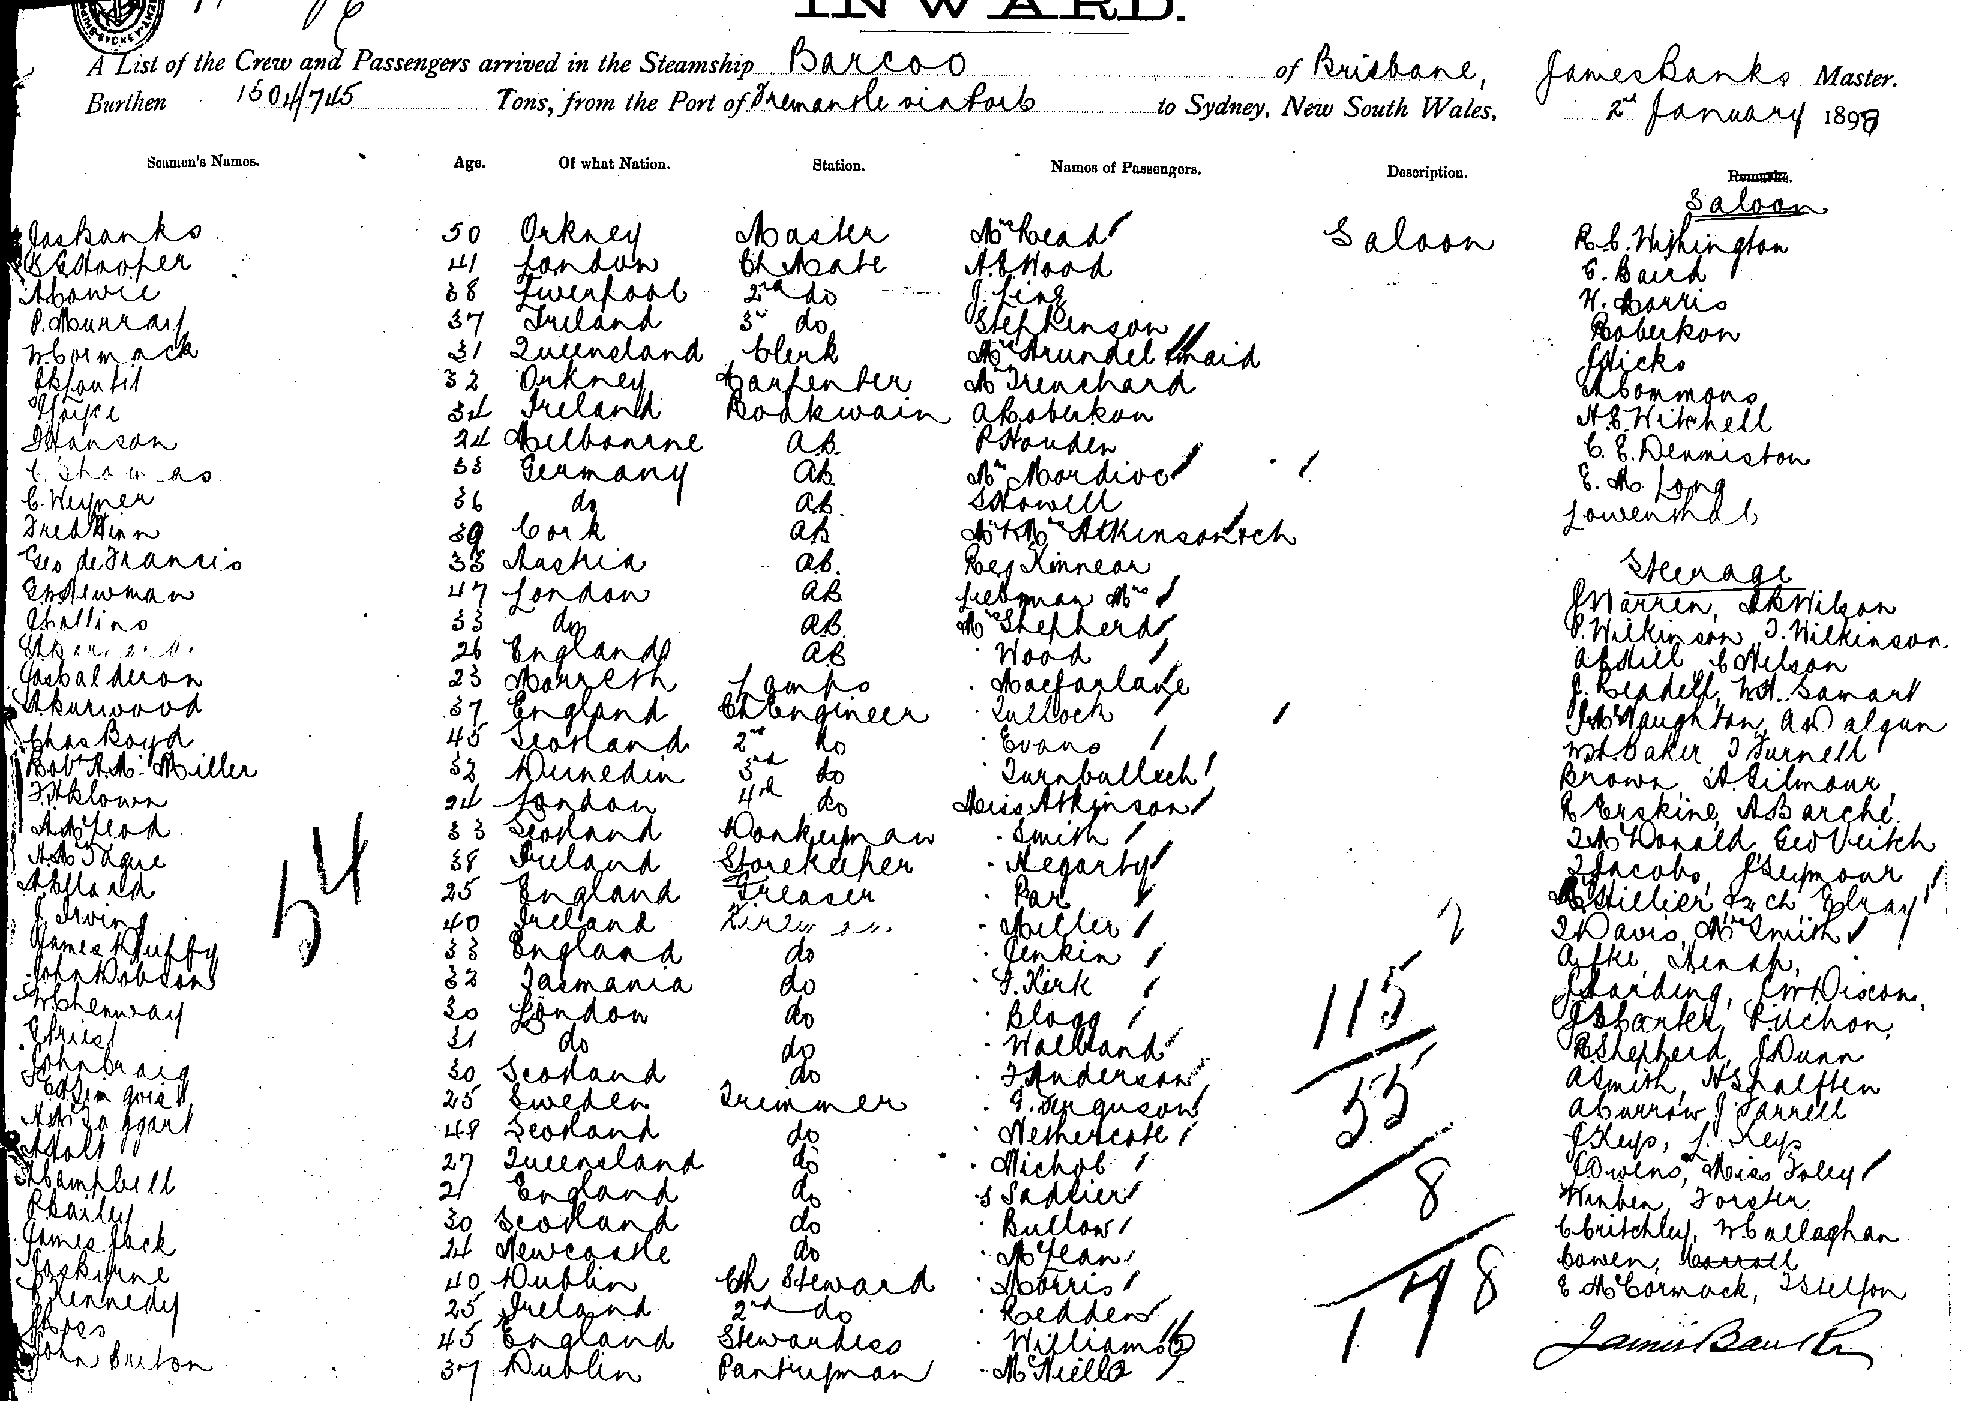 INWARD.
A List of the Crew and Passengers arrived in the Steamship Barcoo of Brisbane, James Banks Master.
Burthen 1504/745 Tons, from the Port of Fremantle via Ports to Sydney, New South Wales, 2nd January 1898
Seamen's Names. Age. Of what Nation. Station. Names of Passengers. Description. Remarks.
Saloon
Jas Banks 50 Orkney Master Mrs Read Saloon R.C. Withington
Hooper 41 London Ch Mate A.E. Wood C. Baird
A Cowie 38 Liverpool 2nd do J. Ling W. Morris
P. Murray 37 Ireland 3rd do Stephenson Robertson
W Cormack 31 Queensland Clerk Mrs Arundel & maid J Hicks
J Foubit 32 Orkney Carpenter Mr Trenchard A Commons
J Joyce 34 Ireland Boatswain A Robertson A.E. Witchell
Hanson 24 Melbourne AB P Houden C.E. Denniston
C. Thomas 33 Germany AB Mrs Mardioc E. M. Long
C. Weyner 36 do AB S Howell Lowenthal
Fred Finn 39 Cork AB Mr & Mrs Atkinson & ch
Geo de Francis 33 Austria AB Reg Kinnear Steerage
Newman 47 London AB Liebman Mrs J Warren, A R Wilson
Collins 33 do AB Mrs Shepherd P. Wilkinson T. Wilkinson
26 England AB Wood A E Hill C Nelson
Jas Calderon 23 Lamps Macfarlane J. Readell, W.H. Samart
A Kurwood 37 England Ch Engineer Tulloch J McNaughton, A Dalgun
Chas Boyd 45 Scotland 2nd do Evans W.H. Baker T Furnell
Robt A.M. Miller 32 Dunedin 3rd do Turnbull & ch Brown, A. Gilmour,
F H Clown 24 London 4th do Miss Atkinson R Erskine, A Barche.
A McLeod 33 Scotland Donkeyman Smith T McDonald, Geo Veitch
A McTague 38 Ireland Storekeeper Hegarty T Jacobs, J Seymour
A Ellard 25 England Greaser Par Mrs Hillier & ch Elray
J. Irwing 40 Ireland Fireman Miller T Davis, Mrs Smith
James Duffy 33 England do Jenkin
John Dobson 32 Tasmania do G. Kirk J Harding,
W Chenway 30 London do Blogg J S Parker, Puchon,
G Priest 31 do do Walband R Shepherd, J Dunn
John Craig 30 Scotland do F Anderson A Smith,
25 Sweden Trimmer G. Ferguson A Currow, J Farrell
A McTaggart 48 Scotland do Nethercote J Keys, L. Keys
A Holt 27 Queensland do Nichol J Owens, Miss Foley
Campbell 21 England do S Sadlier Winben, Forster
P Bailey 30 Scotland do Bullow C Critchley, W Callaghan
James Jack 24 Newcastle do McLean Cowen, Carroll
Jas Byrne 40 Dublin Ch Steward Morris E McCormack,
Kennedy 25 Ireland 2nd do Redden
45 England Stewardess Williams James Banks
John Breton 37 Dublin Pantryman McNiell 2
54
2
115
55
8
178